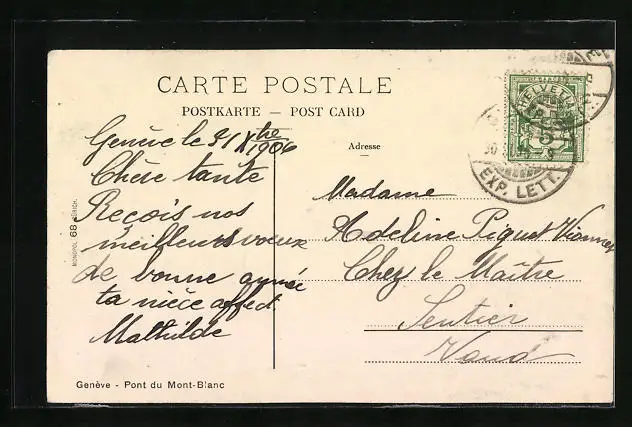 CARTE POSTALE
POSTKARTE — POST CARD
Genève le 31 Xbre 1906
Chère tante
Reçois nos
meilleurs voeux
de bonne année
ta nièce affect.
Mathilde
Adresse
Madame
Adeline Piguet Vianney
Chez le Maître
Sentier
Vaud
HELVETIA
5
EXP. LETT.
MONOPOL 68 ZÜRICH.
Genève - Pont du Mont-Blanc